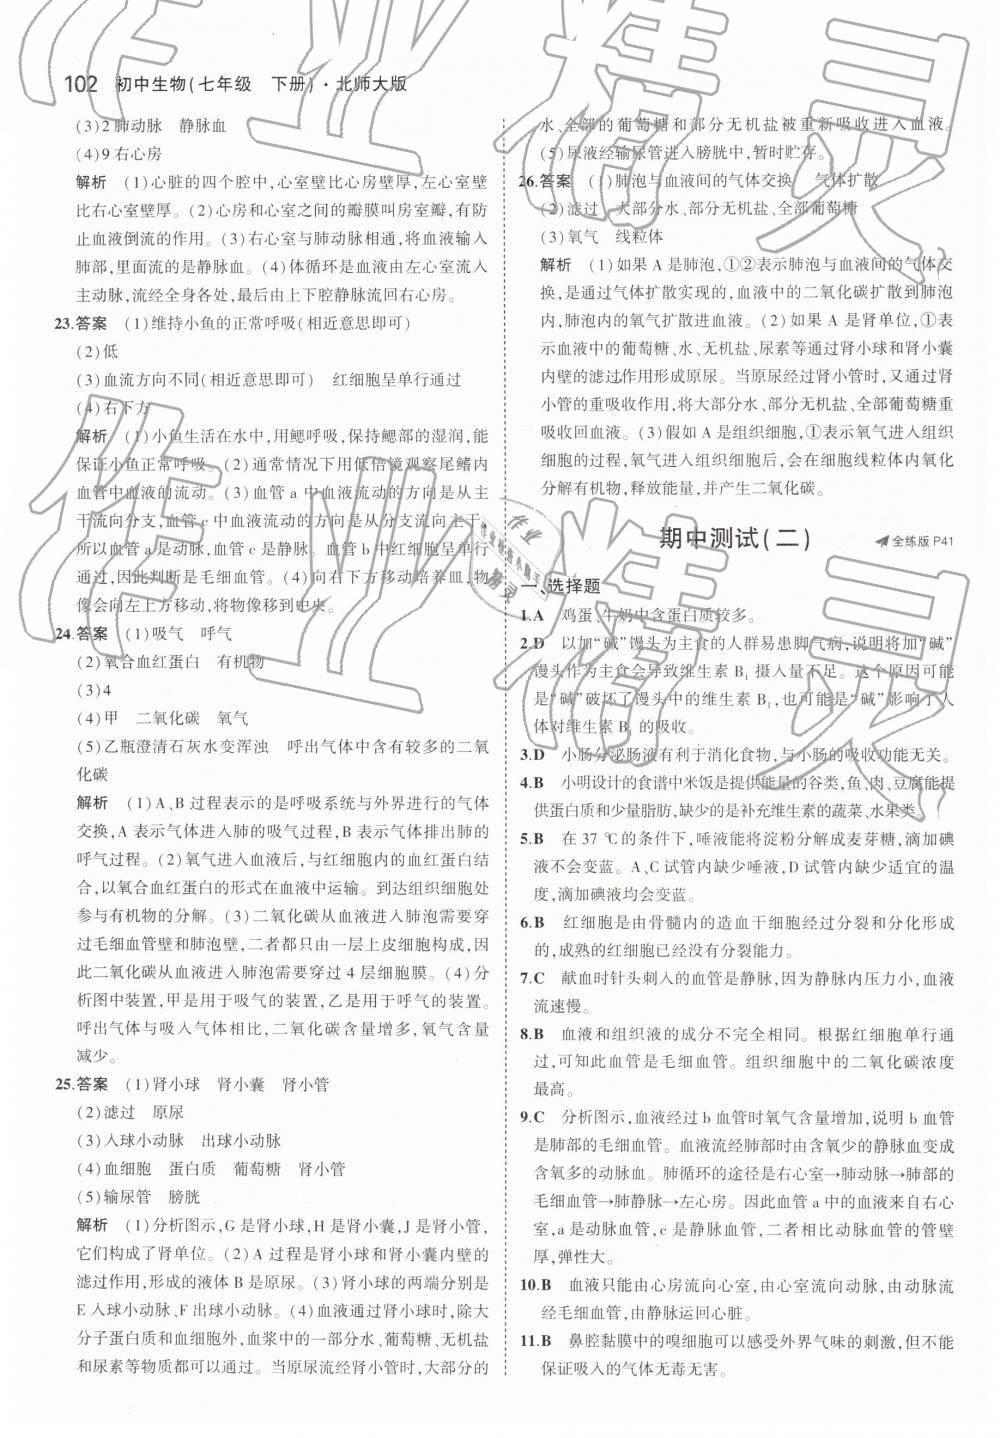 102 初中生物(七年级 下册)·北师大版
(3)2 肺动脉 静脉血
(4)9 右心房
解析 (1)心脏的四个腔中,心室壁比心房壁厚,左心室壁
比右心室壁厚。(2)心房和心室之间的瓣膜叫房室瓣,有防
止血液倒流的作用。(3)右心室与肺动脉相通,将血液输入
肺部,里面流的是静脉血。(4)体循环是血液由左心室流入
主动脉,流经全身各处,最后由上下腔静脉流回右心房。
23.答案 (1)维持小鱼的正常呼吸(相近意思即可)
(2)低
(3)血流方向不同(相近意思即可) 红细胞呈单行通过
(4)右下方
解析 (1)小鱼生活在水中,用鳃呼吸,保持鳃部的湿润,能
保证小鱼正常呼吸。(2)通常情况下用低倍镜观察尾鳍内
血管中血液的流动。(3)血管 a 中血液流动的方向是从主
干流向分支,血管 c 中血液流动的方向是从分支流向主干,
所以血管 a 是动脉,血管 c 是静脉。b 中红细胞呈单行
通过,因此判断是毛细血管。(4)向右下方移动培养皿,物
像会向左上方移动,将物像移到中央。
24.答案 (1)吸气 呼气
(2)氧合血红蛋白 有机物
(3)4
(4)甲 二氧化碳 氧气
(5)乙瓶澄清石灰水变浑浊 呼出气体中含有较多的二氧
化碳
解析 (1)A、B 过程表示的是呼吸系统与外界进行的气体
交换,A 表示气体进入肺的吸气过程,B 表示气体排出肺的
呼气过程。(2)氧气进入血液后,与红细胞内的血红蛋白结
合,以氧合血红蛋白的形式在血液中运输。到达组织细胞处
参与有机物的分解。(3)二氧化碳从血液进入肺泡需要穿
过毛细血管壁和肺泡壁,二者都只由一层上皮细胞构成,因
此二氧化碳从血液进入肺泡需要穿过 4 层细胞膜。(4)分
析图中装置,甲是用于吸气的装置,乙是用于呼气的装置。
呼出气体与吸入气体相比,二氧化碳含量增多,氧气含量
减少。
25.答案 (1)肾小球 肾小囊 肾小管
(2)滤过 原尿
(3)入球小动脉 出球小动脉
(4)血细胞 蛋白质 葡萄糖 肾小管
(5)输尿管 膀胱
解析 (1)分析图示,G 是肾小球,H 是肾小囊,J 是肾小管,
它们构成了肾单位。(2)A 过程是肾小球和肾小囊内壁的
滤过作用,形成的液体 B 是原尿。(3)肾小球的两端分别是
E 入球小动脉、F 出球小动脉。(4)血液通过肾小球时,除大
分子蛋白质和血细胞外,血浆中的一部分水、葡萄糖、无机盐
和尿素等物质都可以通过。当原尿流经肾小管时,大部分的
水、全部的葡萄糖和部分无机盐被重新吸收进入血液。
(5)尿液经输尿管进入膀胱中,暂时贮存。
26.答案 (1)肺泡与血液间的气体交换 气体扩散
(2)滤过 大部分水、部分无机盐、全部葡萄糖
(3)氧气 线粒体
解析 (1)如果 A 是肺泡,①②表示肺泡与血液间的气体交
换,是通过气体扩散实现的,血液中的二氧化碳扩散到肺泡
内,肺泡内的氧气扩散进血液。(2)如果 A 是肾单位,①表
示血液中的葡萄糖、水、无机盐、尿素等通过肾小球和肾小囊
内壁的滤过作用形成原尿。当原尿经过肾小管时,又通过肾
小管的重吸收作用,将大部分水、部分无机盐、全部葡萄糖重
吸收回血液。(3)假如 A 是组织细胞,①表示氧气进入组织
细胞的过程,氧气进入组织细胞后,会在细胞线粒体内氧化
分解有机物,释放能量,并产生二氧化碳。
期中测试(二) 全练版 P41
一、选择题
1.A 鸡蛋、牛奶中含蛋白质较多。
2.D 以加“碱”馒头为主食的人群易患脚气病,说明将加“碱”
馒头作为主食会导致维生素 B₁ 摄入量不足。这个原因可能
是“碱”破坏了馒头中的维生素 B₁,也可能是“碱”影响了人
体对维生素 B₁ 的吸收。
3.D 小肠分泌肠液有利于消化食物,与小肠的吸收功能无关。
4.B 小明设计的食谱中米饭是提供能量的谷类,鱼、肉、豆腐能提
供蛋白质和少量脂肪,缺少的是补充维生素的蔬菜、水果类。
5.B 在 37 ℃的条件下,唾液能将淀粉分解成麦芽糖,滴加碘
液不会变蓝。A、C 试管内缺少唾液,D 试管内缺少适宜的温
度,滴加碘液均会变蓝。
6.B 红细胞是由骨髓内的造血干细胞经过分裂和分化形成
的,成熟的红细胞已经没有分裂能力。
7.C 献血时针头刺入的血管是静脉,因为静脉内压力小,血液
流速慢。
8.B 血液和组织液的成分不完全相同。根据红细胞单行通
过,可知此血管是毛细血管。组织细胞中的二氧化碳浓度
最高。
9.C 分析图示,血液经过 b 血管时氧气含量增加,说明 b 血管
是肺部的毛细血管。血液流经肺部时由含氧少的静脉血变成
含氧多的动脉血。肺循环的途径是右心室→肺动脉→肺部的
毛细血管→肺静脉→左心房。因此血管 a 中的血液来自右心
室,a 是动脉血管,c 是静脉血管,二者相比动脉血管的管壁
厚,弹性大。
10.B 血液只能由心房流向心室,由心室流向动脉,由动脉流
经毛细血管,由静脉运回心脏。
11.B 鼻腔黏膜中的嗅细胞可以感受外界气味的刺激,但不能
保证吸入的气体无毒无害。
作业精灵
作业精灵